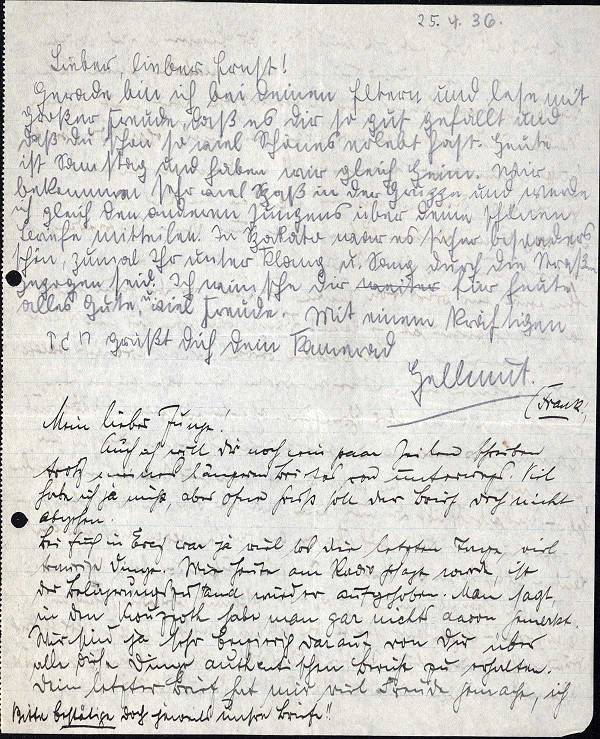 25.4.36.
Lieber, lieber Ernst!
Gerade bin ich bei deinen Eltern und lese mit
großer Freude, daß es dir so gut gefällt und
daß du schon so viel Schönes erlebt hast. Heute
ist Samstag und haben wir gleich Heim. Wir
bekommen sehr viel Spaß in der Gruppe und werde
ich gleich den anderen Jungens über deine schönen
Briefe mitteilen. In war es sicher besonders
schön, zumal Ihr unter Klang u. Sang durch die Straßen
gezogen seid. Ich wünsche dir weiter für heute
alles Gute, u. viel Freude. Mit einem kräftigen
grüßt dich dein Kamerad
Hellmut.
(Frank)
Mein lieber Junge!
Auch ich will dir noch ein paar Zeilen schreiben
trotz meines längeren Briefes von unterwegs. Viel
habe ich ja nicht, aber ohne Gruß soll der Brief doch nicht
abgehen.
Bei Euch in Erez war ja viel los die letzten Tage, viel
traurige Dinge. Wie heute am Radio gesagt wurde, ist
der Belagerungszustand wieder aufgehoben. Man sagt,
in den habe man gar nichts davon gemerkt.
Wir sind ja sehr begierig darauf von Dir über
alle diese Dinge authentischen Bericht zu erhalten.
Dein letzter Brief hat mir viel Freude gemacht, ich
Bitte bestätige doch jeweils unsre Briefe!!